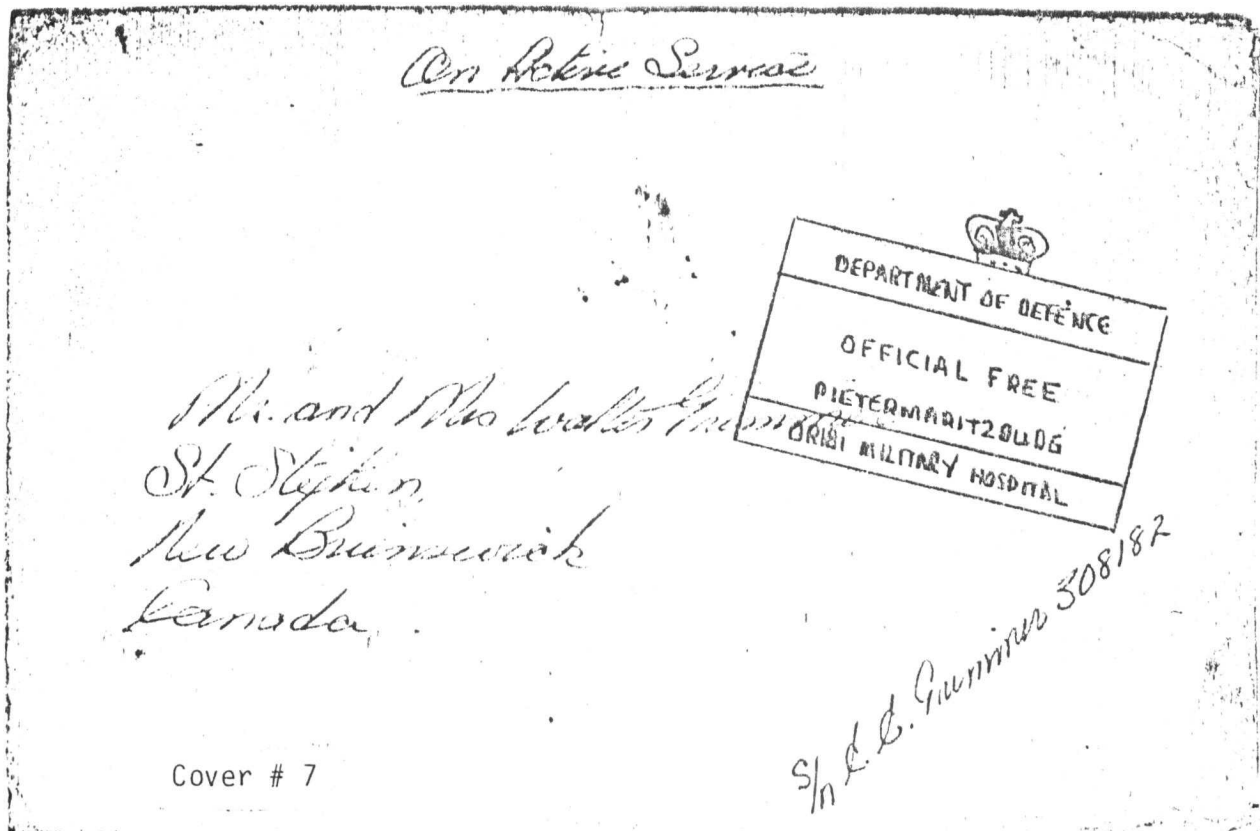 On Active Service
DEPARTMENT OF DEFENCE
OFFICIAL FREE
PIETERMARITZBURG
ORIBI MILITARY HOSPITAL
Mr. and Mrs Walter
St. Stephen,
New Brunswick
Canada.
S/n C. C. 308182
Cover # 7